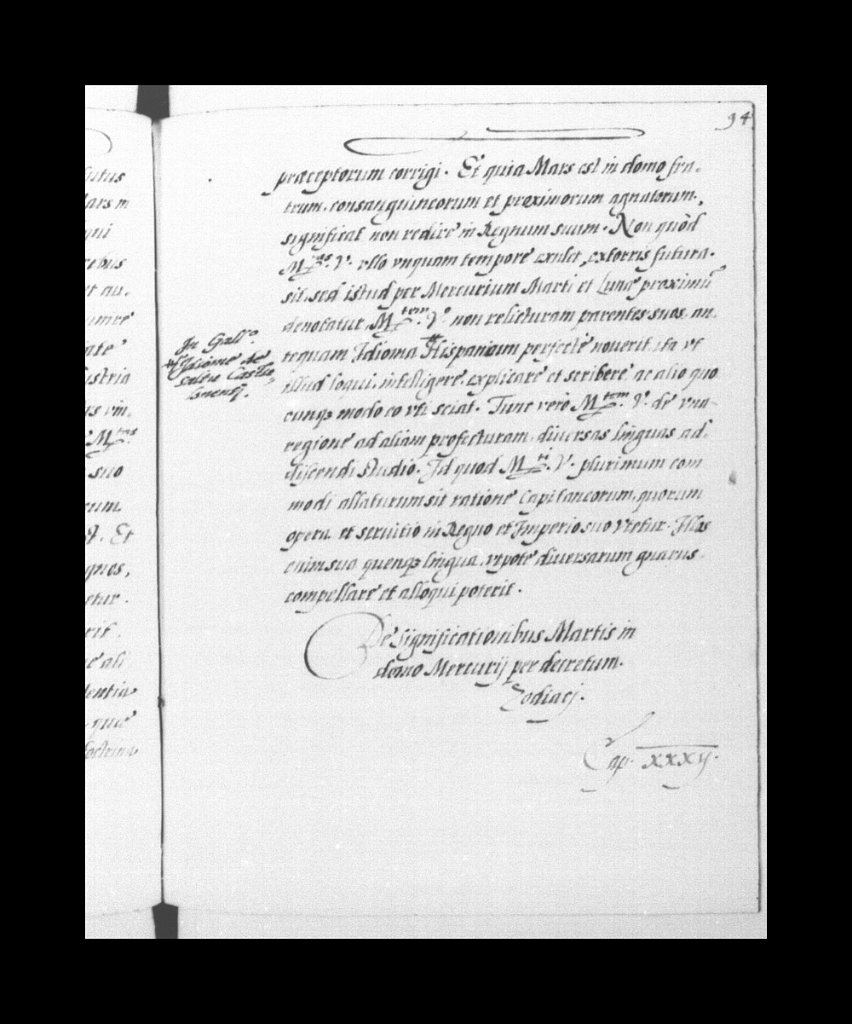 94
præceptorum corrigi. Et quia Mars est in domo fra-
trum, consanguineorum et proximorum agnatorum,
significat non redire in Regnum suum. Non quòd
M.tas V.ª vllo vnquam tempore exulet, extorris futura
sit, sed istud per Mercurium Marti et Lunæ proximũ
denotatur, M.tem V. non relicturam parentes suos, an-
tequam Idioma Hispanicum perfectè nouerit, ita vt
illud loqui, intelligere, explicare et scribere ac alio quo
cunq3 modo eo vti sciat. Tunc verò M.tem V. de vna
regione ad aliam profecturam, diuersas linguas ad-
discendi studio. Id quod M.ti V. plurimum com
modi allaturum sit ratione Capitaneorum, quorum
opera et seruitio in Regno et Imperio suo vtetur. Illos
enim sua quenq3 lingua, vtpote diuersarum gnarus
compellare et alloqui poterit.
In Gall.º
Idiome de
Castil
De significationibus Martis in
domo Mercurij per decretum
Zodiaci.
Cap. xxxij.
lutus
Mars in
qui
rebus
et au-
ate
ustria
M.tas
suo
rum
Et
gnos,
etur.
rit.
ali
dentia
quæ
doctrina